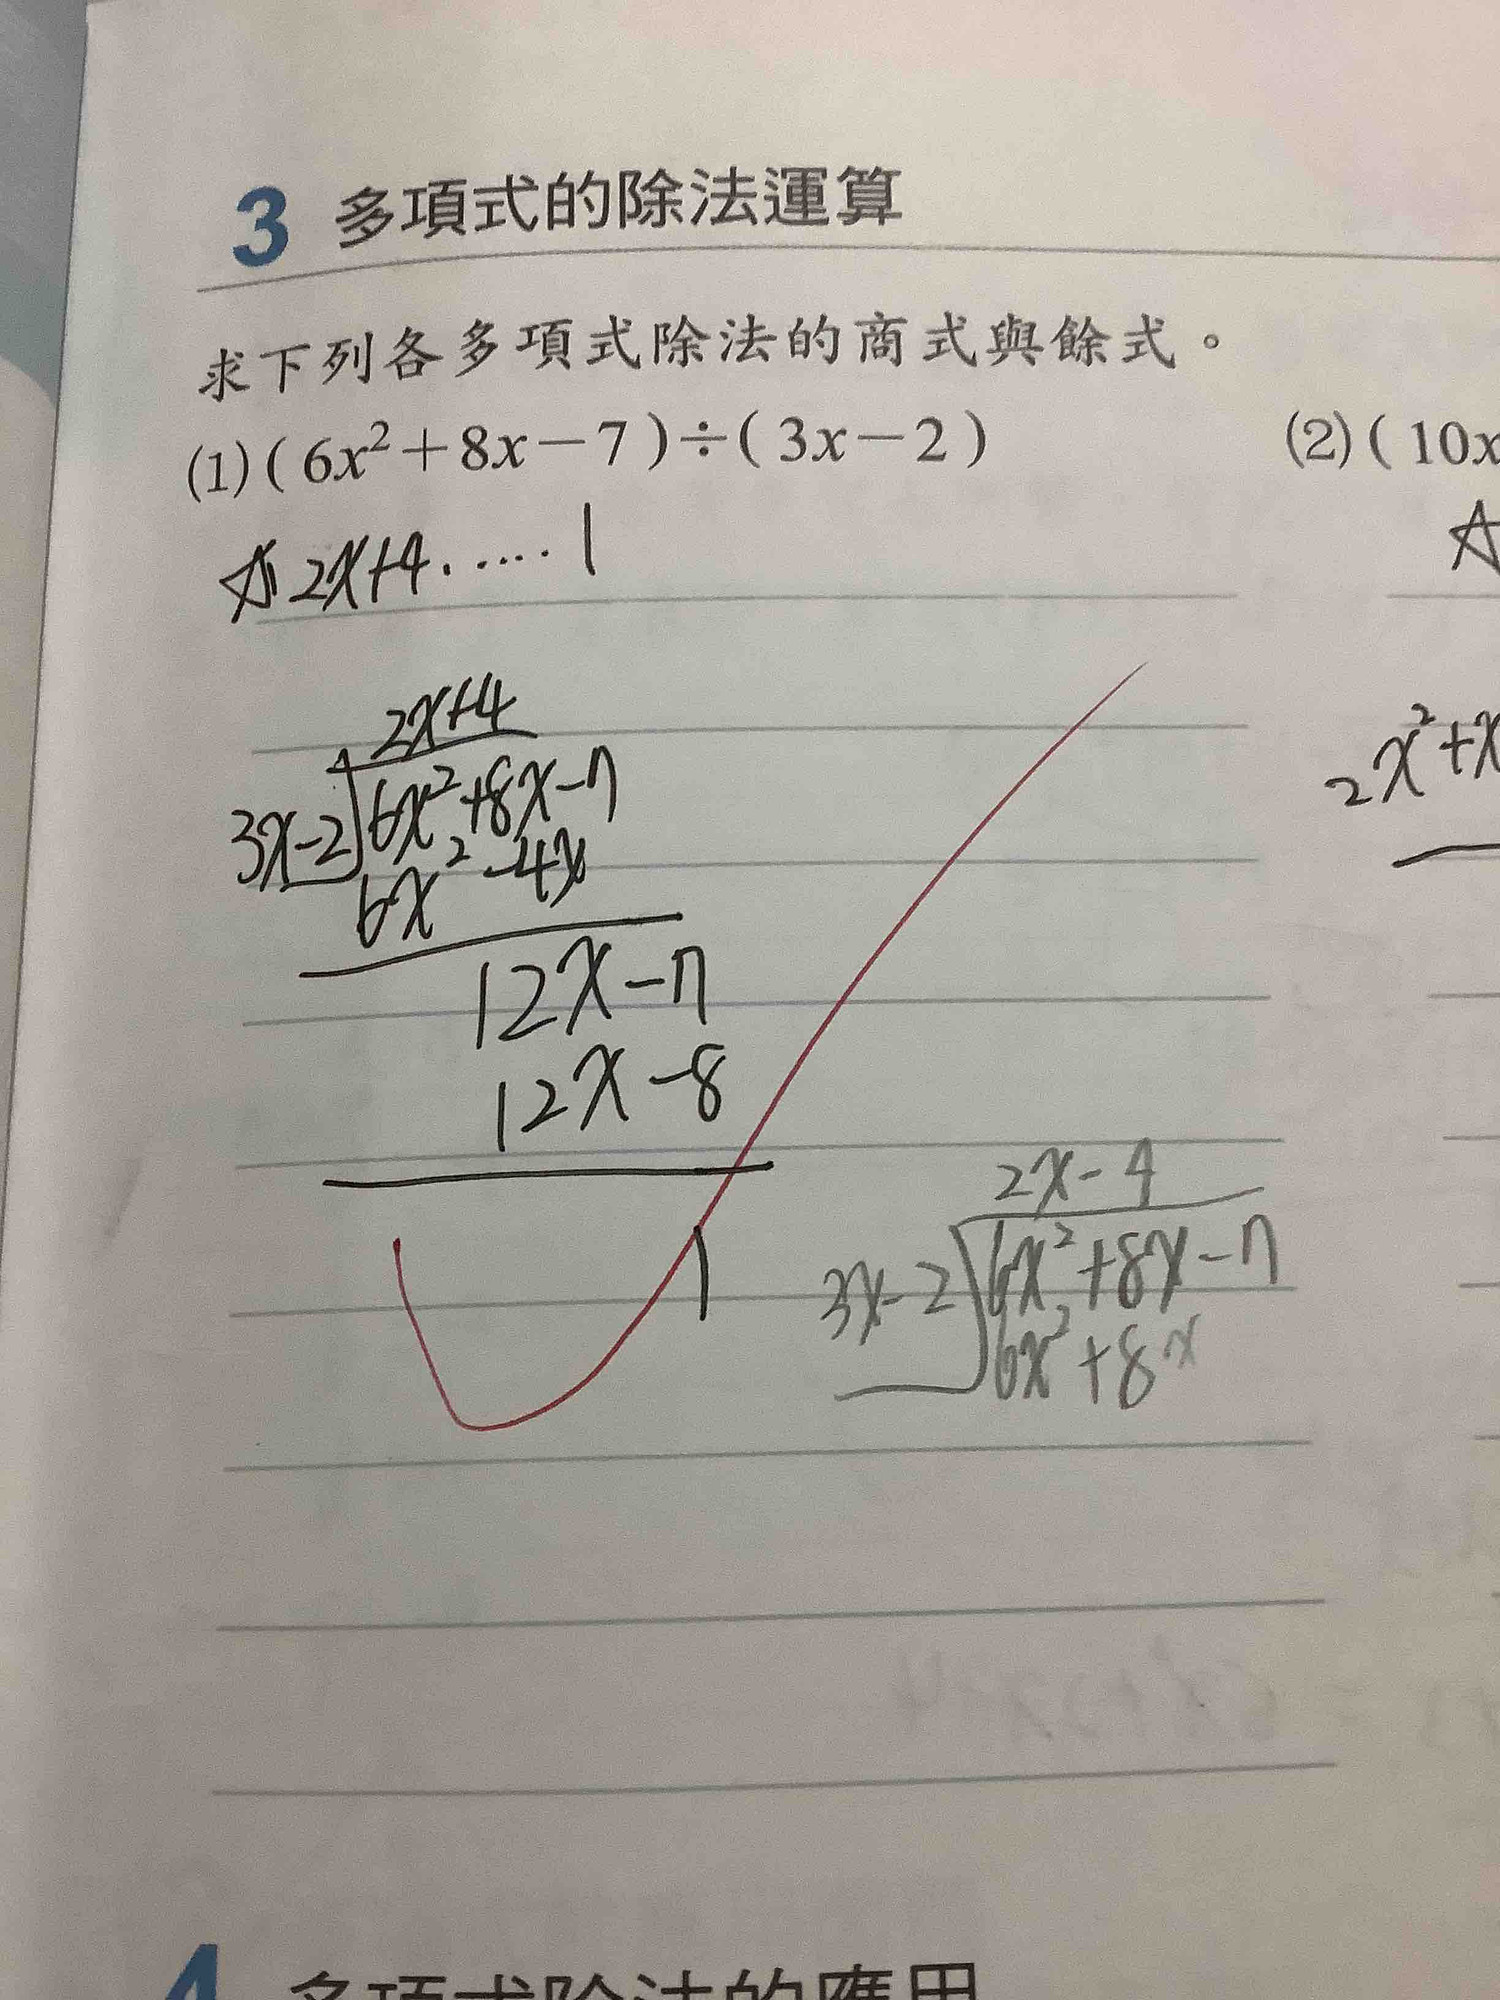 3 多項式的除法運算
求下列各多項式除法的商式與餘式。
(1)(6x²+8x-7)÷(3x-2)
(2)(10x
2x+4……1
2x+4
3x-2 6x²+8x-7
6x²-4x
12x-7
12x-8
1
2x²+x
2x-4
3x-2 6x²+8x-7
6x²+8x
4 多項式除法的應用